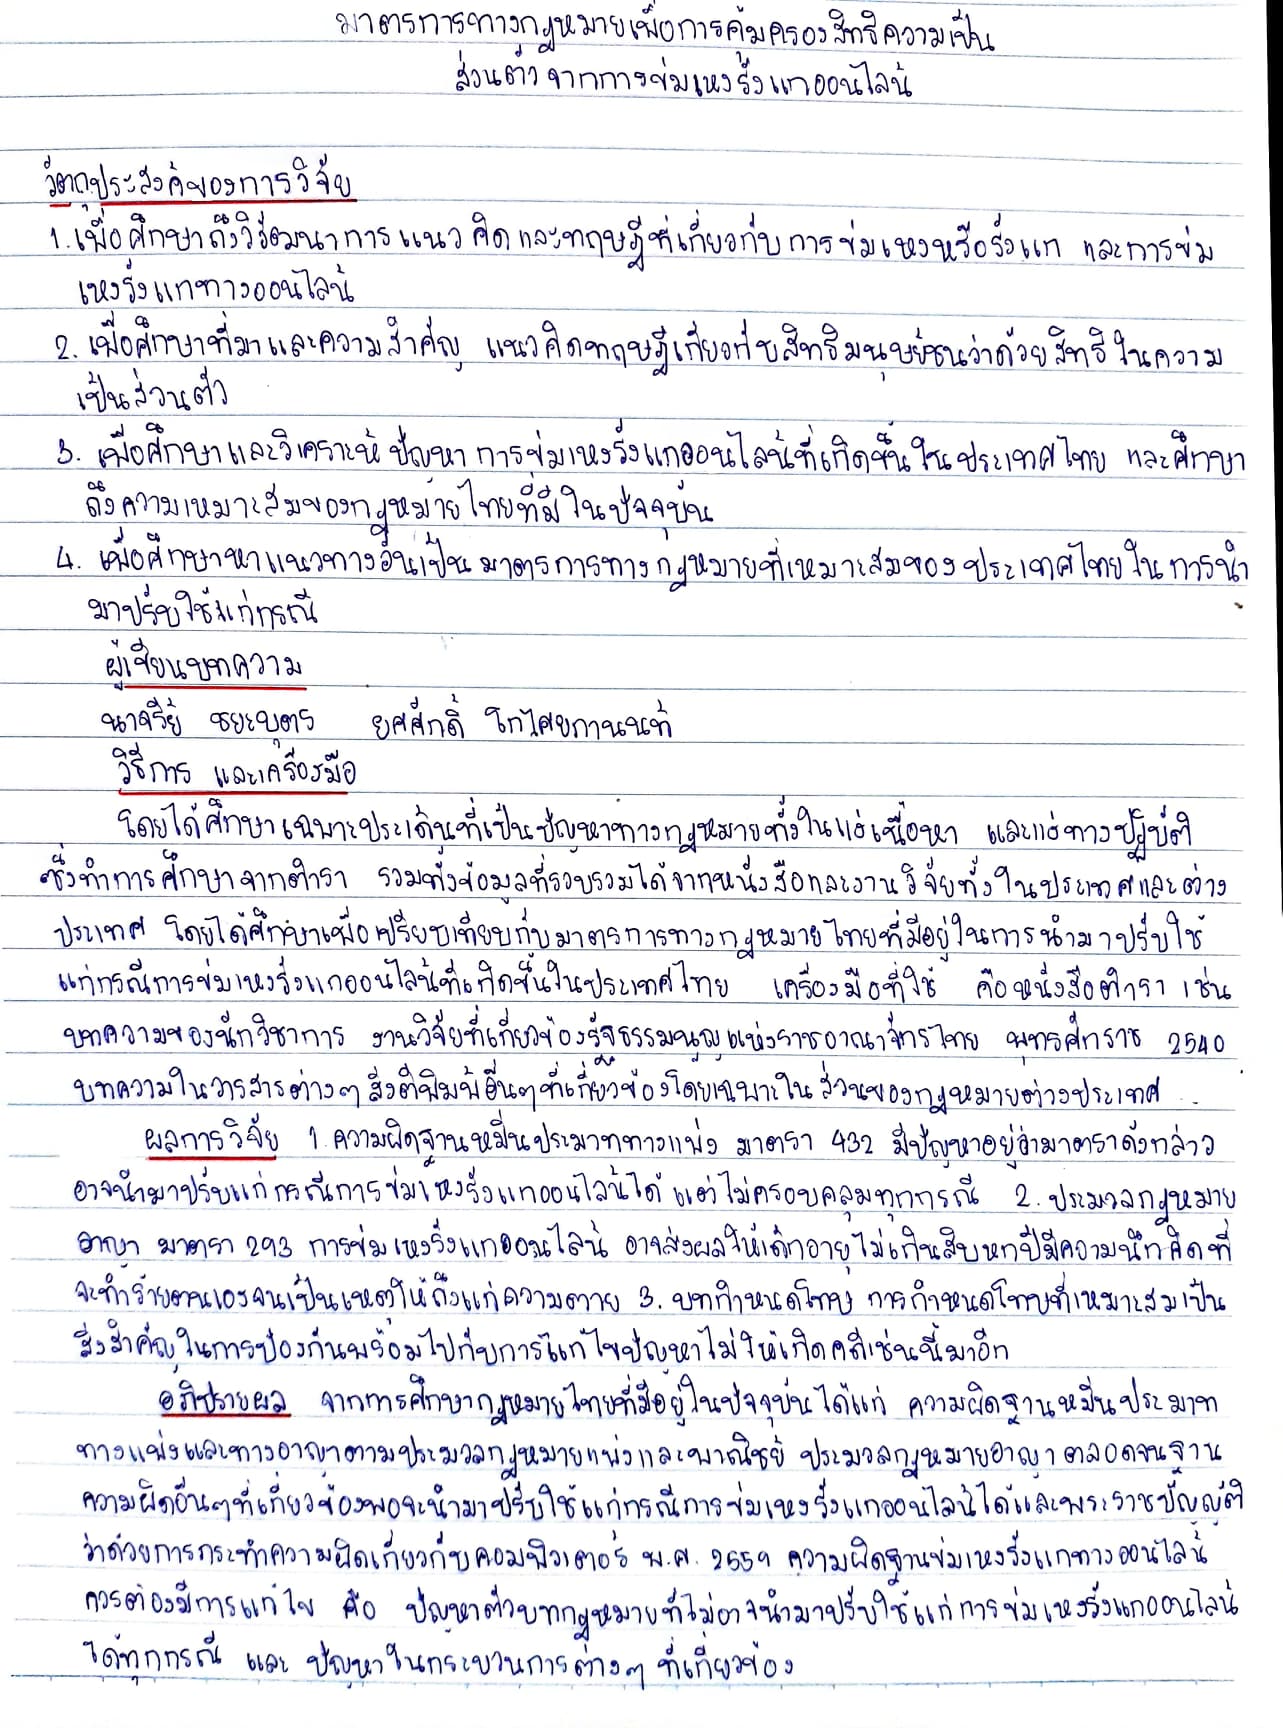 มาตรการทางกฎหมายเพื่อการคุ้มครองสิทธิความเป็น
ส่วนตัวจากการข่มเหงรังแกออนไลน์
วัตถุประสงค์ของการวิจัย
1. เพื่อศึกษาถึงวิวัฒนาการแนวคิดและทฤษฎีที่เกี่ยวกับการข่มเหงหรือรังแก และการข่ม
เหงรังแกทางออนไลน์
2. เพื่อศึกษาที่มาและความสำคัญ แนวคิดทฤษฎีเกี่ยวกับสิทธิมนุษย์ชนว่าด้วยสิทธิในความ
เป็นส่วนตัว
3. เพื่อศึกษาและวิเคราะห์ปัญหาการข่มเหงรังแกออนไลน์ที่เกิดขึ้นในประเทศไทย และศึกษา
ถึงความเหมาะสมของกฎหมายไทยที่มีในปัจจุบัน
4. เพื่อศึกษาหาแนวทางอันเป็นมาตรการทางกฎหมายที่เหมาะสมของประเทศไทยในการนำ
มาปรับใช้แก่กรณี
ผู้เขียนบทความ
นาจรีย์ ชยะบุตร ยศศักดิ์ โกไศยกานนท์
วิธีการ และเครื่องมือ
โดยได้ศึกษาเฉพาะประเด็นที่เป็นปัญหาทางกฎหมายทั้งในแง่เนื้อหา และแง่ทางปฏิบัติ
ซึ่งทำการศึกษาจากตำรา รวมทั้งข้อมูลที่รวบรวมได้จากหนังสือและงานวิจัยทั้งในประเทศและต่าง
ประเทศ โดยได้ศึกษาเพื่อเปรียบเทียบกับมาตรการทางกฎหมายไทยที่มีอยู่ในการนำมาปรับใช้
แก่กรณีการข่มเหงรังแกออนไลน์ที่เกิดขึ้นในประเทศไทย เครื่องมือที่ใช้ คือหนังสือตำรา เช่น
บทความของนักวิชาการ งานวิจัยที่เกี่ยวข้องรัฐธรรมนูญแห่งราชอาณาจักรไทย พุทธศักราช 2540
บทความในวารสารต่างๆ สิ่งตีพิมพ์อื่นๆที่เกี่ยวข้องโดยเฉพาะในส่วนของกฎหมายต่างประเทศ
ผลการวิจัย 1. ความผิดฐานหมิ่นประมาททางแพ่ง มาตรา 432 มีปัญหาอยู่ว่ามาตราดังกล่าว
อาจนำมาปรับแก่กรณีการข่มเหงรังแกออนไลน์ได้ แต่ไม่ครอบคลุมทุกกรณี 2. ประมวลกฎหมาย
อาญา มาตรา 293 การข่มเหงรังแกออนไลน์ อาจส่งผลให้เด็กอายุไม่เกินสิบหกปีมีความนึกคิดที่
จะทำร้ายตนเองจนเป็นเหตุให้ถึงแก่ความตาย 3. บทกำหนดโทษ การกำหนดโทษที่เหมาะสมเป็น
สิ่งสำคัญในการป้องกันพร้อมไปกับการแก้ไขปัญหาไม่ให้เกิดคดีเช่นนี้มาอีก
อภิปรายผล จากการศึกษากฎหมายไทยที่มีอยู่ในปัจจุบันได้แก่ ความผิดฐานหมิ่นประมาท
ทางแพ่งและทางอาญาตามประมวลกฎหมายแพ่งและพาณิชย์ ประมวลกฎหมายอาญา ตลอดจนฐาน
ความผิดอื่นๆที่เกี่ยวข้องพอจะนำมาปรับใช้แก่กรณีการข่มเหงรังแกออนไลน์ได้และพระราชบัญญัติ
ว่าด้วยการกระทำความผิดเกี่ยวกับคอมพิวเตอร์ พ.ศ. 2559 ความผิดฐานข่มเหงรังแกทางออนไลน์
ควรต้องมีการแก้ไข คือ ปัญหาตัวบทกฎหมายที่ไม่อาจนำมาปรับใช้แก่การข่มเหงรังแกออนไลน์
ได้ทุกกรณี และ ปัญหาในกระบวนการต่างๆ ที่เกี่ยวข้อง